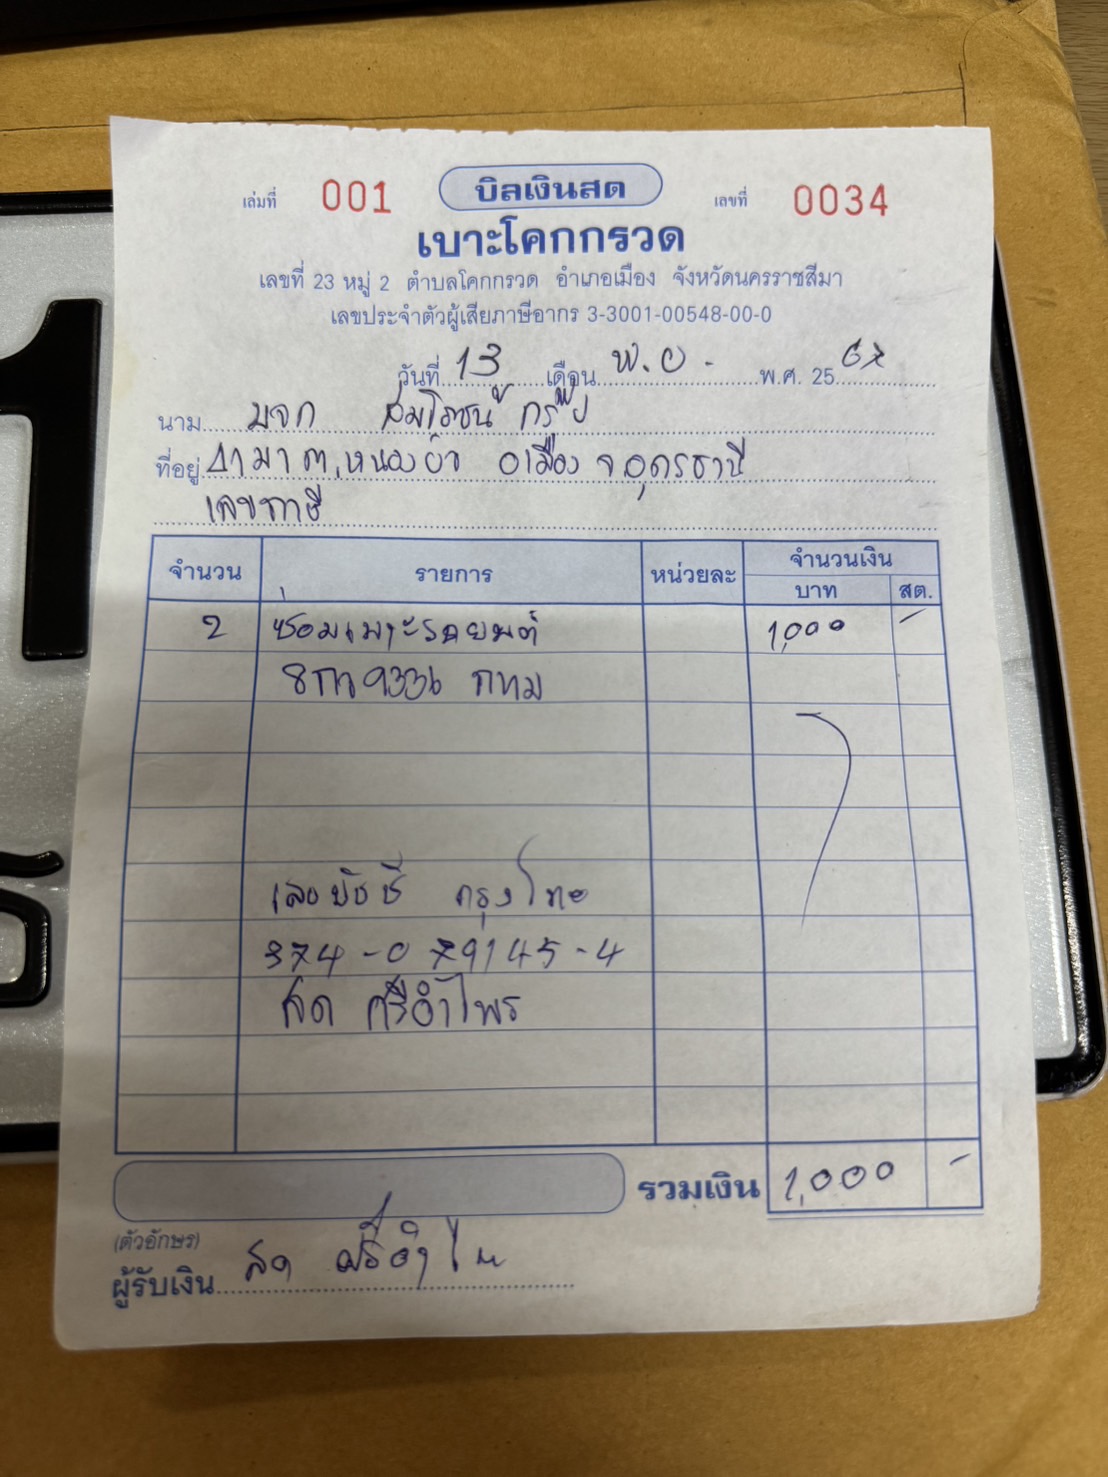 เล่มที่ 001 บิลเงินสด เลขที่ 0034
เบาะโคกกรวด
เลขที่ 23 หมู่ 2 ตำบลโคกกรวด อำเภอเมือง จังหวัดนครราชสีมา
เลขประจำตัวผู้เสียภาษีอากร 3-3001-00548-00-0
วันที่ 13 เดือน พ.ย. พ.ศ. 2567
นาม มจก สมโภชน์ กรุ๊ป
ที่อยู่ ต.หนองบัว อ.เมือง จ.อุดรธานี
เลขภาษี
จำนวน รายการ หน่วยละ จำนวนเงิน
บาท สต.
2 ซ่อมเบาะรถยนต์ 1,000 -
8กว 9336 กทม
เลขบัชชี กรุงไทย
374-079145-4
สด ศรีอำไพร
รวมเงิน 1,000 -
(ตัวอักษร)
ผู้รับเงิน สด ศรีอำไพ